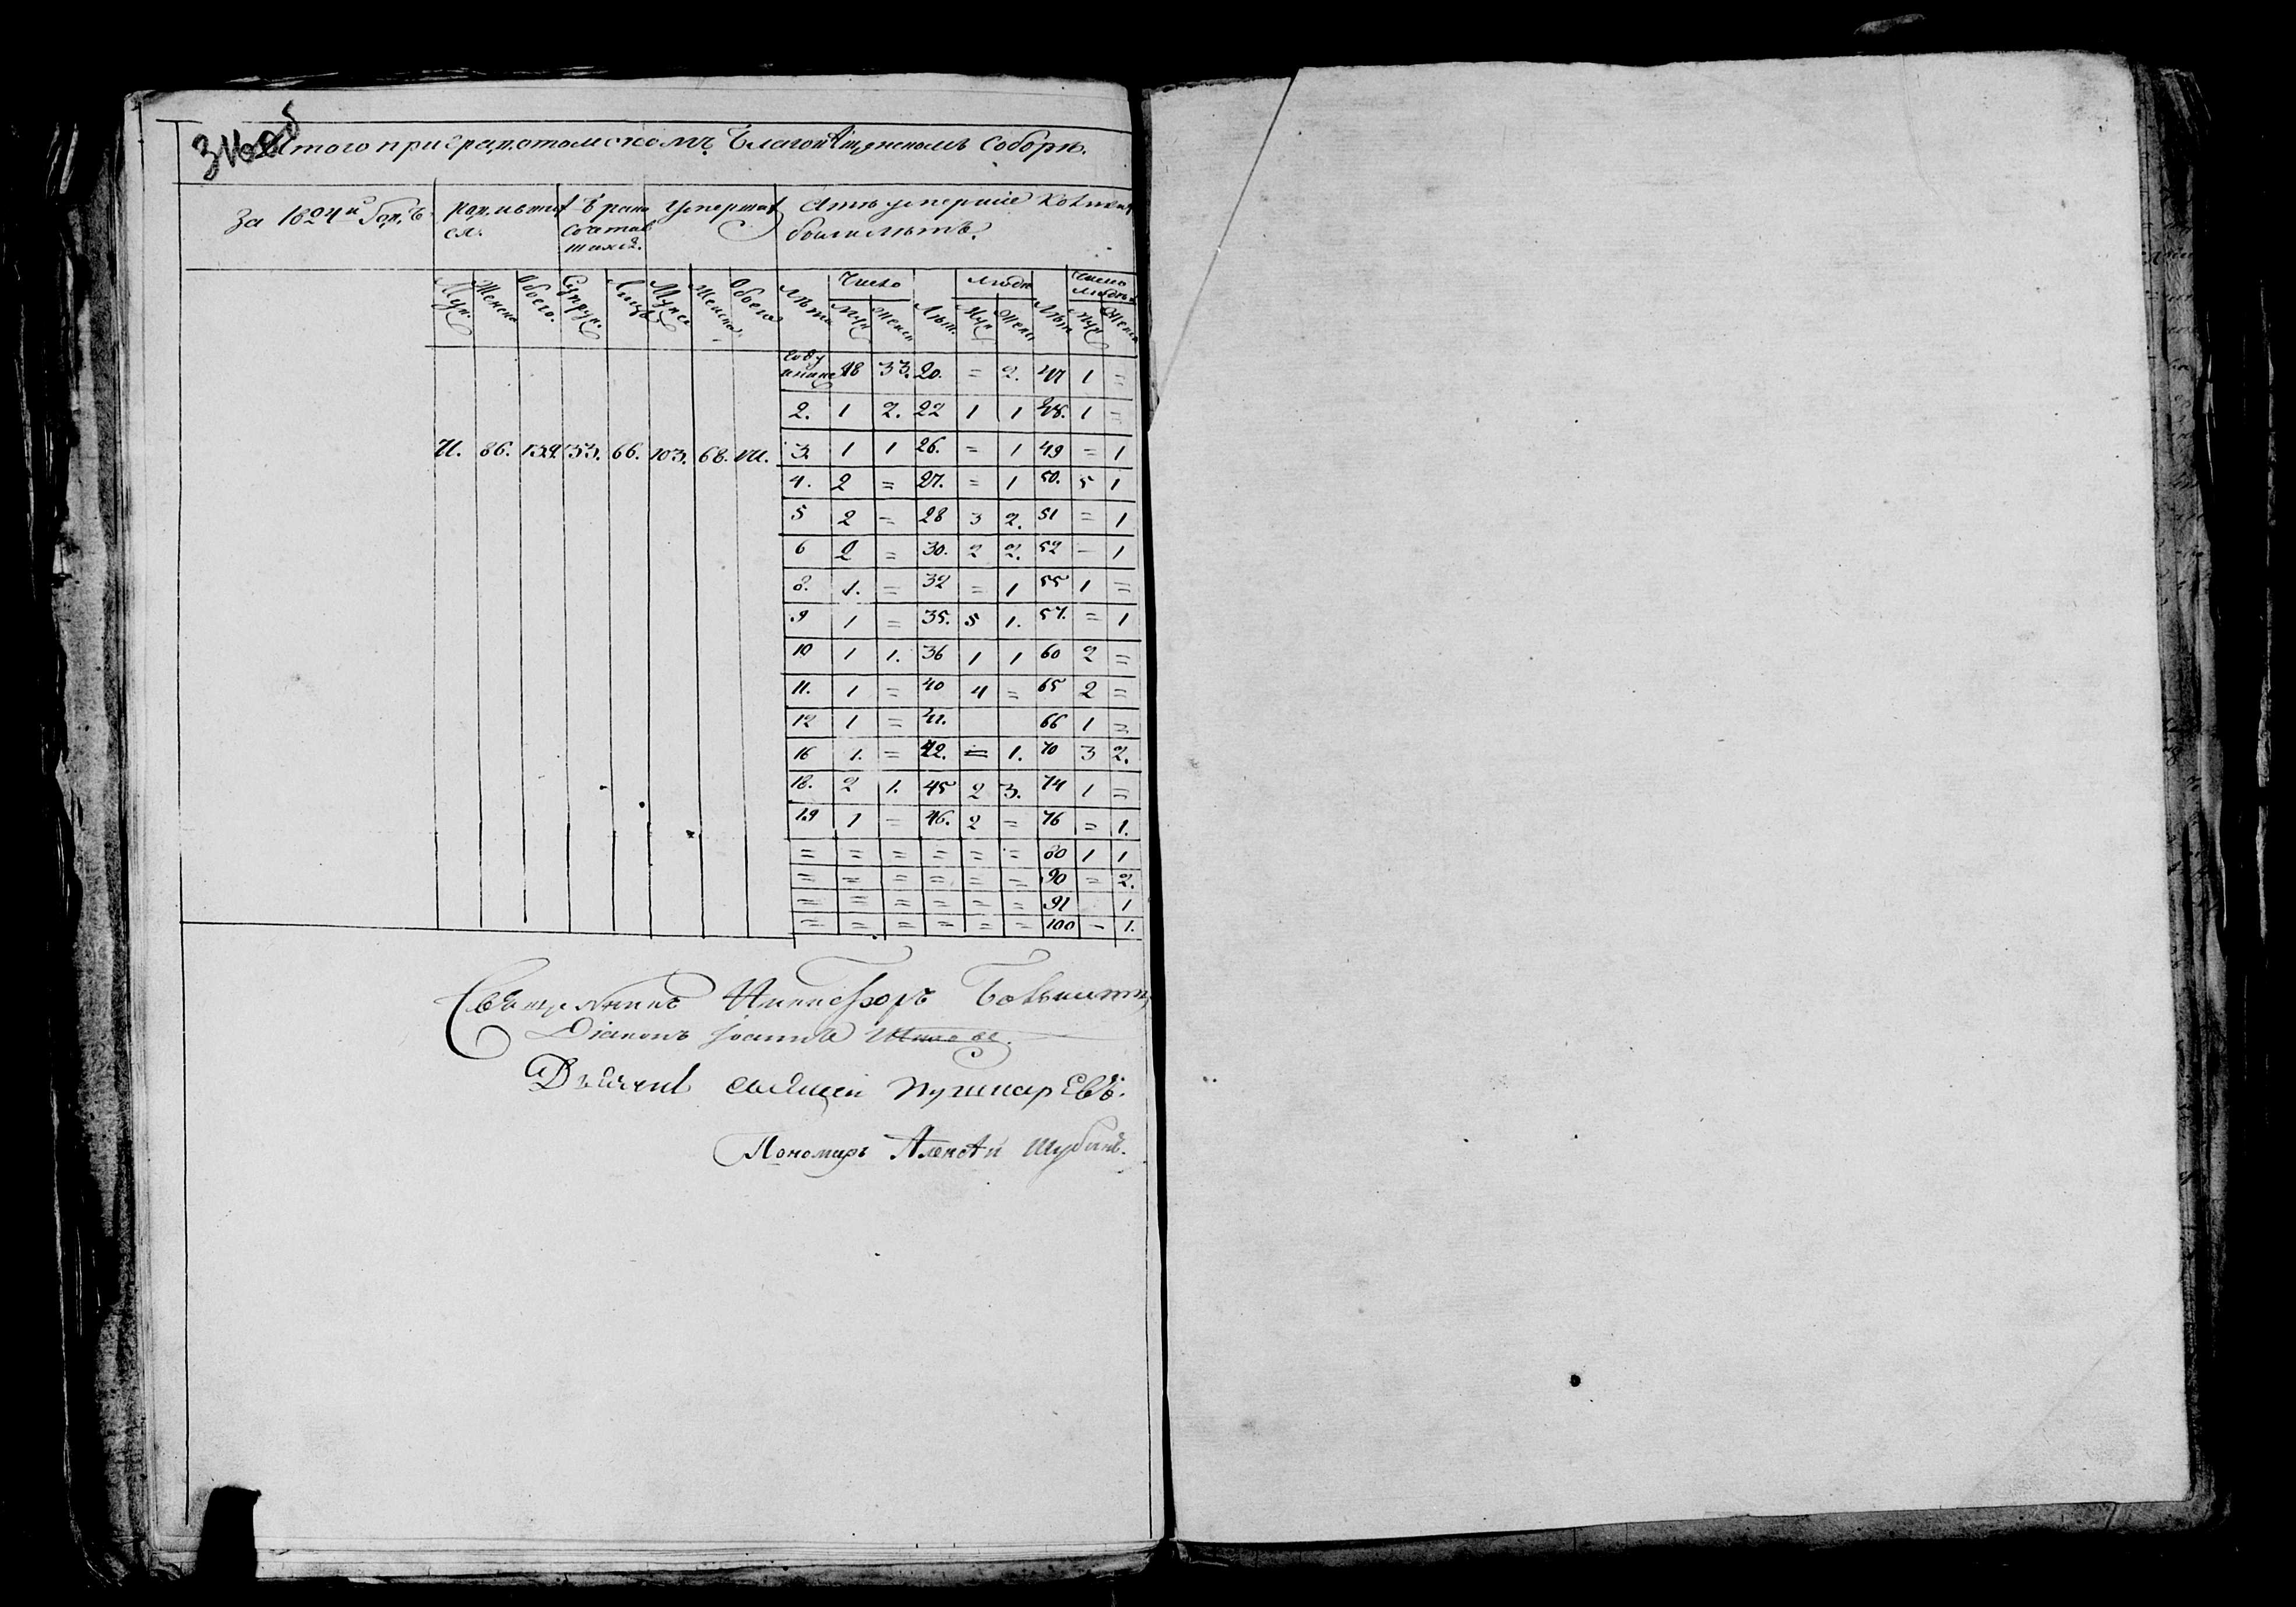 316 об
Итого при градотомскомъ Благовѣщенскомъ Соборѣ.
За 1824й Годъ
Родившихся.
Бракосочетавшихся.
Умершихъ
А тѣ умершіе коликихъ были лѣтъ.
Муж. Женска Обоего. Супруж. Лица Мужеск Женска Обоего Лѣта Число Муж Женск Лѣт. Людей Муж Женск Лѣта Число людей Муж Женск
71. 86. 157. 33. 66. 103. 68. 171.
Году неимѣ 48 33. 20. = 2. 47 1 =
2. 1 2. 22 1 1 48. 1 =
3. 1 1 26. = 1 49 = 1
4. 2 = 27. = 1 50. 5 1
5 2 = 28 3 2. 51 = 1
6 2 = 30. 2 2. 52 - 1
8. 1. = 32 = 1 55 1 =
9 1 = 35. 5 1. 57. = 1
10 1 1. 36 1 1 60 2 =
11. 1 = 40 4 = 65 2 =
12 1 = 41. 66 1 =
16 1. = 42. = 1. 70 3 2.
18. 2 1. 45 2 3. 74 1 =
19 1 = 46. 2 = 76 = 1.
= = = = = = 80 1 1
= = = = = = 90 = 2.
= = = = = = 91 1
= = = = = = 100 - 1.
Священникъ Никифоръ
Діаконъ Іоаннъ
Дьячекъ Пушкаревъ.
Пономарь Алексѣй Шубинъ.